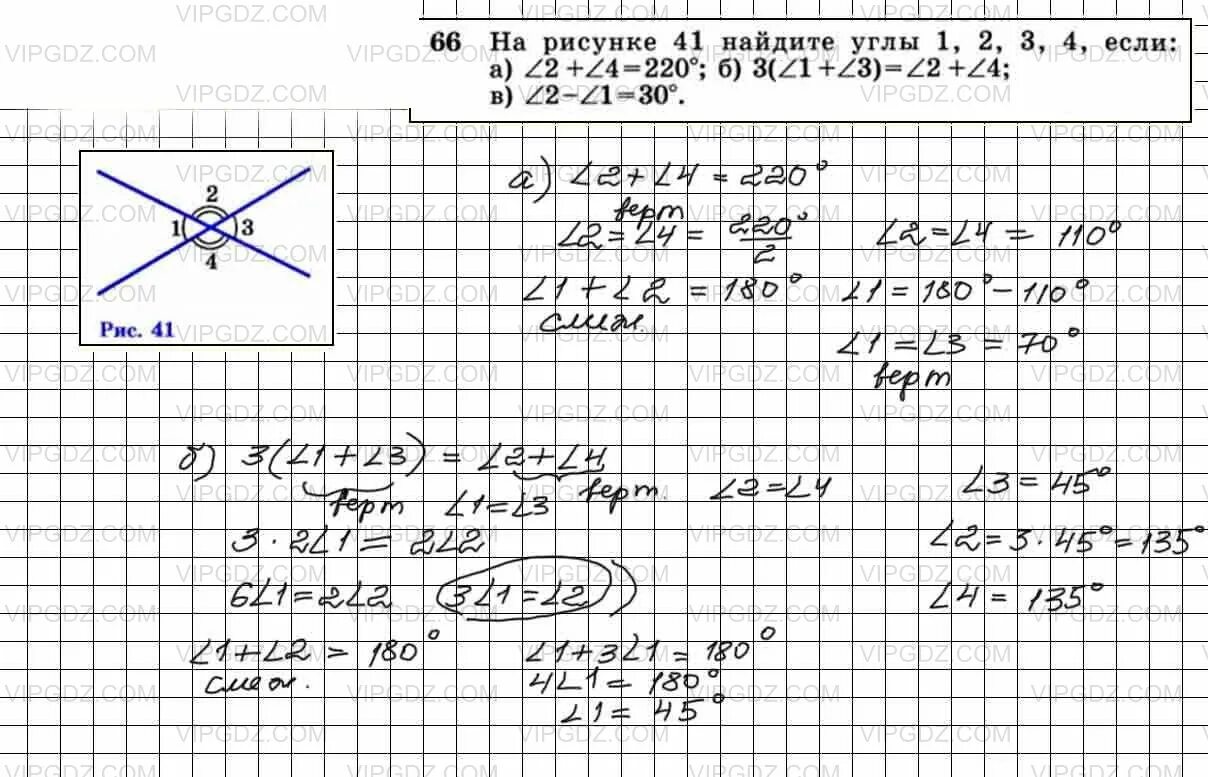 66 На рисунке 41 найдите углы 1, 2, 3, 4, если:
а) ∠2+∠4=220°; б) 3(∠1+∠3)=∠2+∠4;
в) ∠2−∠1=30°.
2
1 3
4
Рис. 41
а) ∠2+∠4 = 220°
верт
∠2=∠4 = 220°/2 ∠2=∠4 = 110°
∠1+∠2 = 180° ∠1 = 180°−110°
смеж.
∠1=∠3 = 70°
верт
б) 3(∠1+∠3) = ∠2+∠4
верт ∠1=∠3 верт. ∠2=∠4 ∠3=45°
3·2∠1=2∠2 ∠2=3·45°=135°
6∠1=2∠2 3∠1=∠2) ∠4= 135°
∠1+∠2 = 180° ∠1+3∠1 = 180°
смеж. 4∠1= 180°
∠1= 45°
VIPGDZ.COM